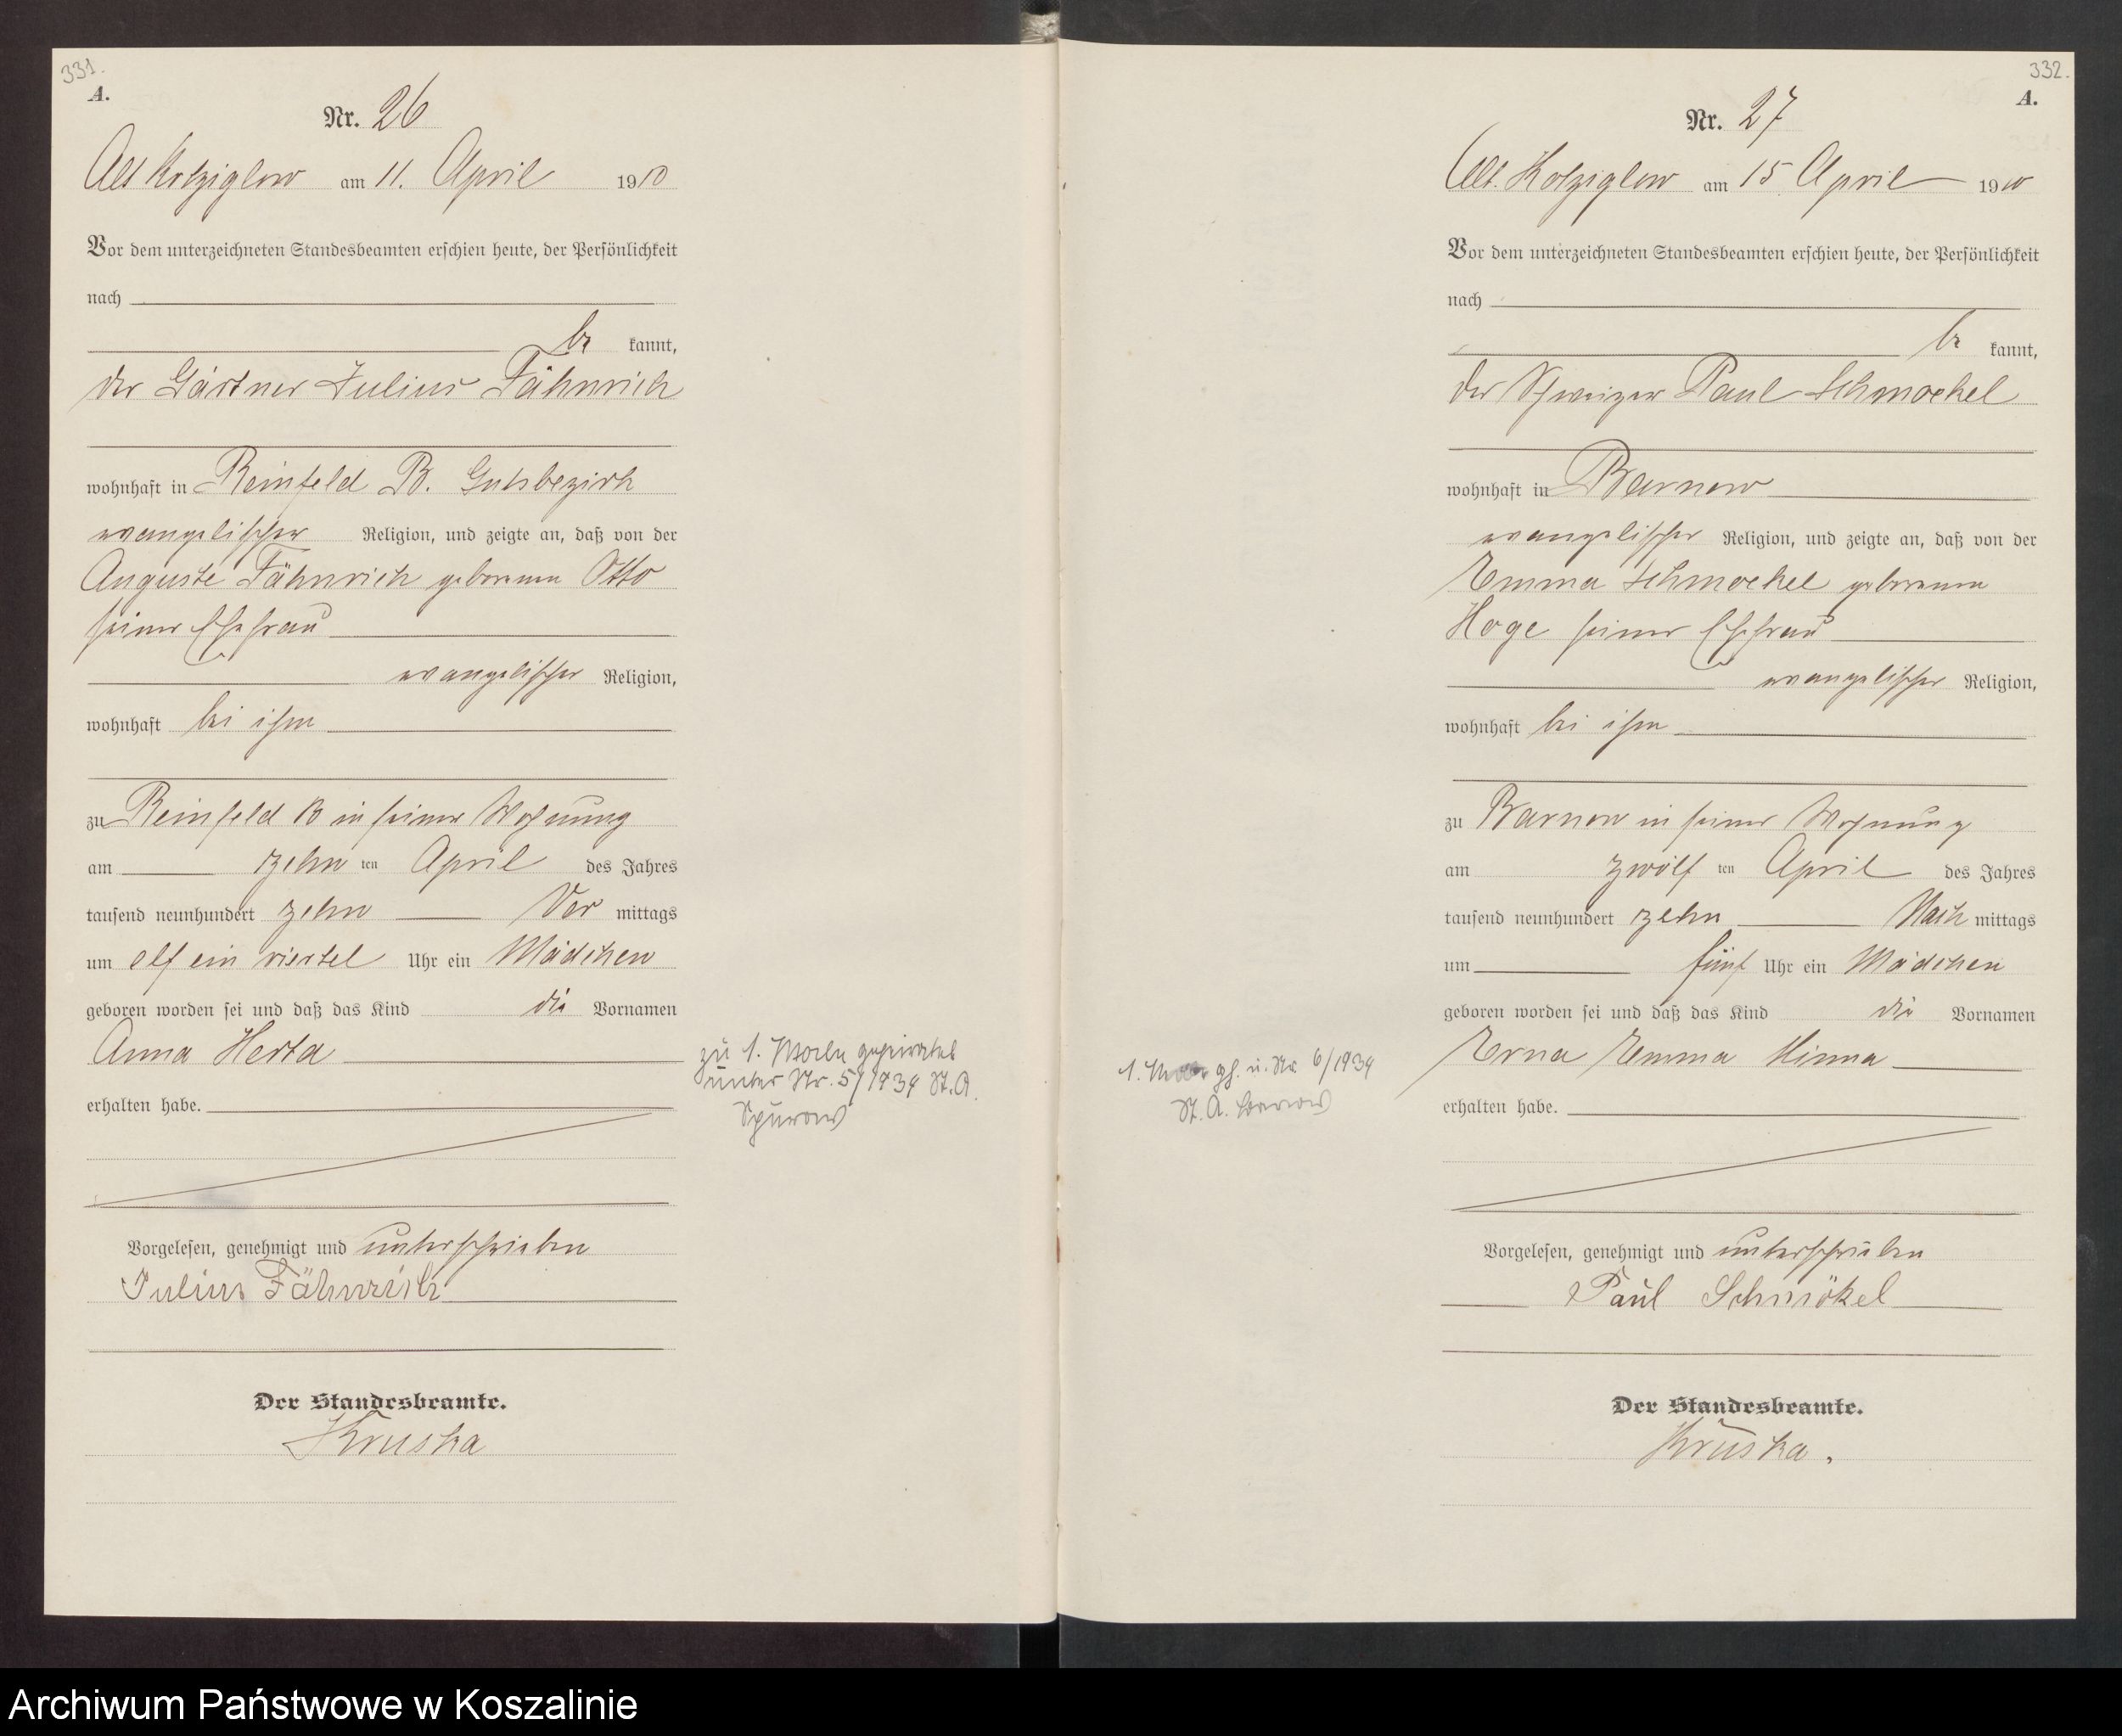 331.
A.
Nr. 26
Alt Kolziglow am 11. April 1910
Vor dem unterzeichneten Standesbeamten erschien heute, der Persönlichkeit
nach
be kannt,
der Gärtner Julius Fähnrich
wohnhaft in Reinfeld B. Gutsbezirk
evangelischer Religion, und zeigte an, daß von der
Auguste Fähnrich geborenen Otto
seiner Ehefrau
evangelischer Religion,
wohnhaft bei ihm
zu Reinfeld B in seiner Wohnung
am zehn ten April des Jahres
tausend neunhundert zehn Vor mittags
um elf ein viertel Uhr ein Mädchen
geboren worden sei und daß das Kind die Vornamen
Anna Herta
erhalten habe.
Vorgelesen, genehmigt und unterschrieben
Julius Fähnrich
Der Standesbeamte.
Kruska
zu 1. Male geheiratet
unter Nr. 5/1934 St.A.
332.
A.
Nr. 27
Alt. Kolziglow am 15 April 1910
Vor dem unterzeichneten Standesbeamten erschien heute, der Persönlichkeit
nach
be kannt,
der Schweizer Paul Schmoekel
wohnhaft in Barnow
evangelischer Religion, und zeigte an, daß von der
Emma Schmoekel geborenen
Hoge seiner Ehefrau
evangelischer Religion,
wohnhaft bei ihm
zu Barnow in seiner Wohnung
am zwölf ten April des Jahres
tausend neunhundert zehn Nach mittags
um fünf Uhr ein Mädchen
geboren worden sei und daß das Kind die Vornamen
Erna Emma Minna
erhalten habe.
Vorgelesen, genehmigt und unterschrieben
Paul Schmökel
Der Standesbeamte.
Kruska.
1. gh. u. Nr. 6/1934
St. A. Barnow
Archiwum Państwowe w Koszalinie